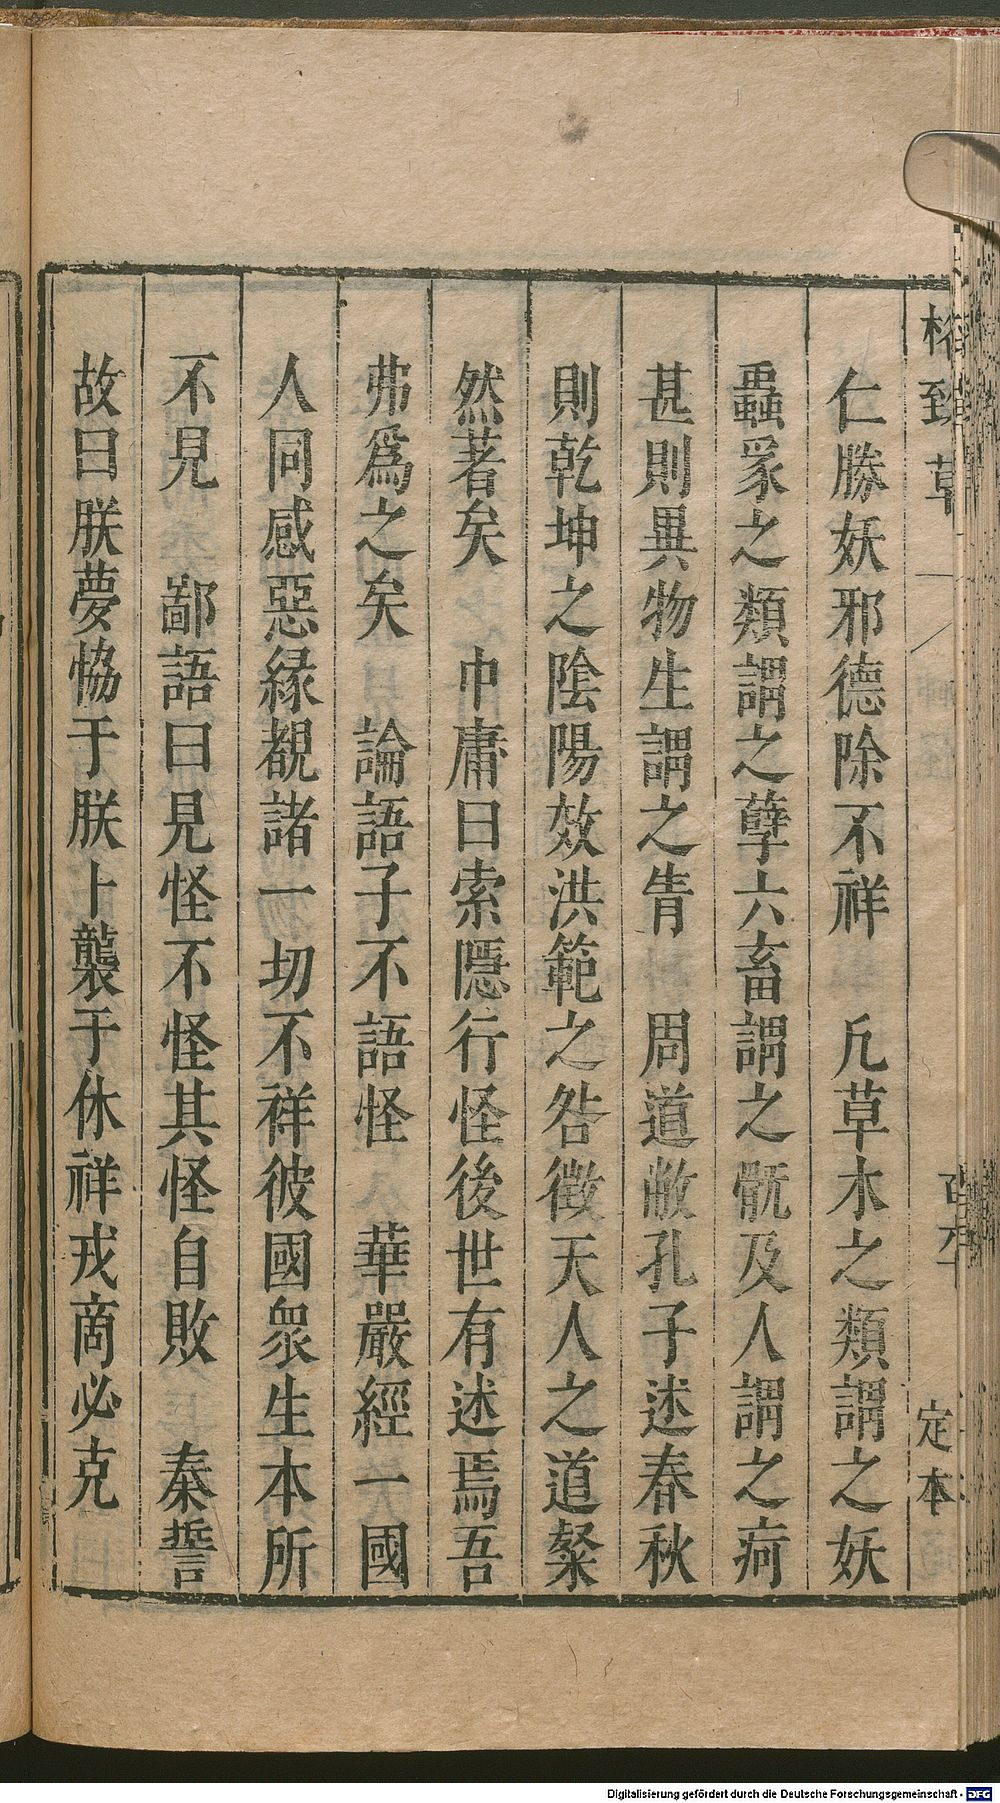 格致草
定本
仁勝妖邪德除不祥　凡草木之類謂之妖
蟲豸之類謂之孽六畜謂之旤及人謂之痾
甚則異物生謂之眚　周道敝孔子述春秋
則乾坤之陰陽效洪範之咎徵天人之道粲
然著矣　中庸曰索隱行怪後世有述焉吾
弗爲之矣　論語子不語怪　華嚴經一國
人同感惡縁覩諸一切不祥彼國衆生本所
不見　鄙語曰見怪不怪其怪自敗　秦誓
故曰朕夢恊于朕卜襲于休祥戎商必克
Digitalisierung gefördert durch die Deutsche Forschungsgemeinschaft - DFG